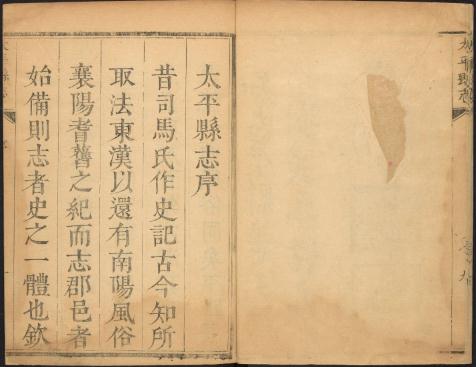 太平縣志序
昔司馬氏作史記古今知所
取法東漢以還有南陽風俗
襄陽耆舊之紀而志郡邑者
始備則志者史之一體也欽
太平縣志